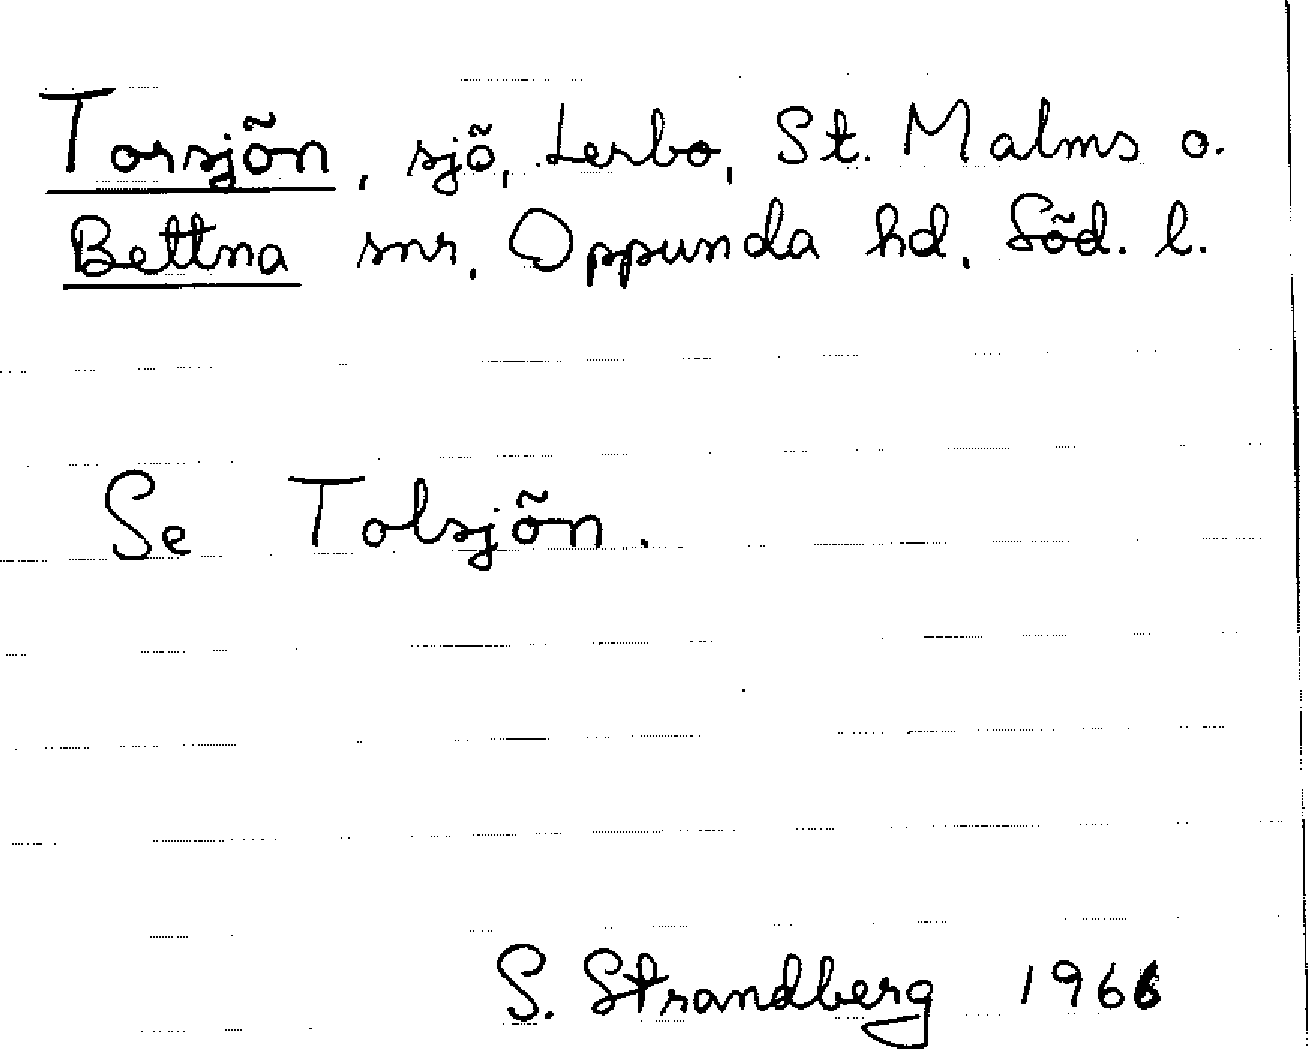 Torsjön, sjö, Lerbo, St. Malms o.
Bettna snr, Oppunda hd, Söd. l.
Se Tolsjön.
S. Strandberg 1966